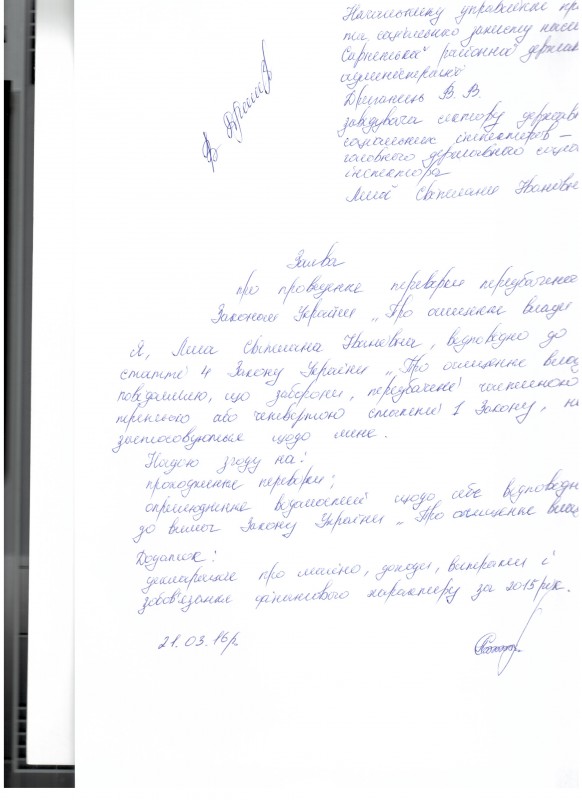 Начальнику управління пр
та соціального захисту насе
Сарненської районної держав
адміністрації
Друганець В. В.
завідувача сектору державн
соціальних інспекторів –
головного державного соціа
інспектора
Світлани Іванівн
Заява
про проведення перевірки, передбаченої
Законом України „Про очищення влади
Я, Світлана Іванівна, відповідно до
статті 4 Закону України „Про очищення влад
повідомляю, що заборони, передбачені частиною
третьою або четвертою статті 1 Закону, не
застосовуються щодо мене.
Надаю згоду на:
проходження перевірки;
оприлюднення відомостей щодо себе відповідн
до вимог Закону України „Про очищення влад
Додаток:
декларація про майно, доходи, витрати і
зобов'язання фінансового характеру за 2015 рік.
21.03.16р.